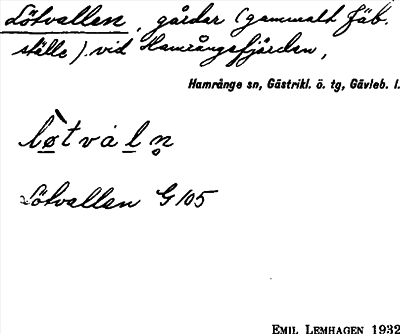 Lötvallen, gårdar (gammalt fäb.
ställe) vid Hamrångefjärden,
Hamrånge sn, Gästrikl. ö. tg, Gävleb. l.
lø̀tvaln̥
Lötvallen G 105
EMIL LEMHAGEN 1932